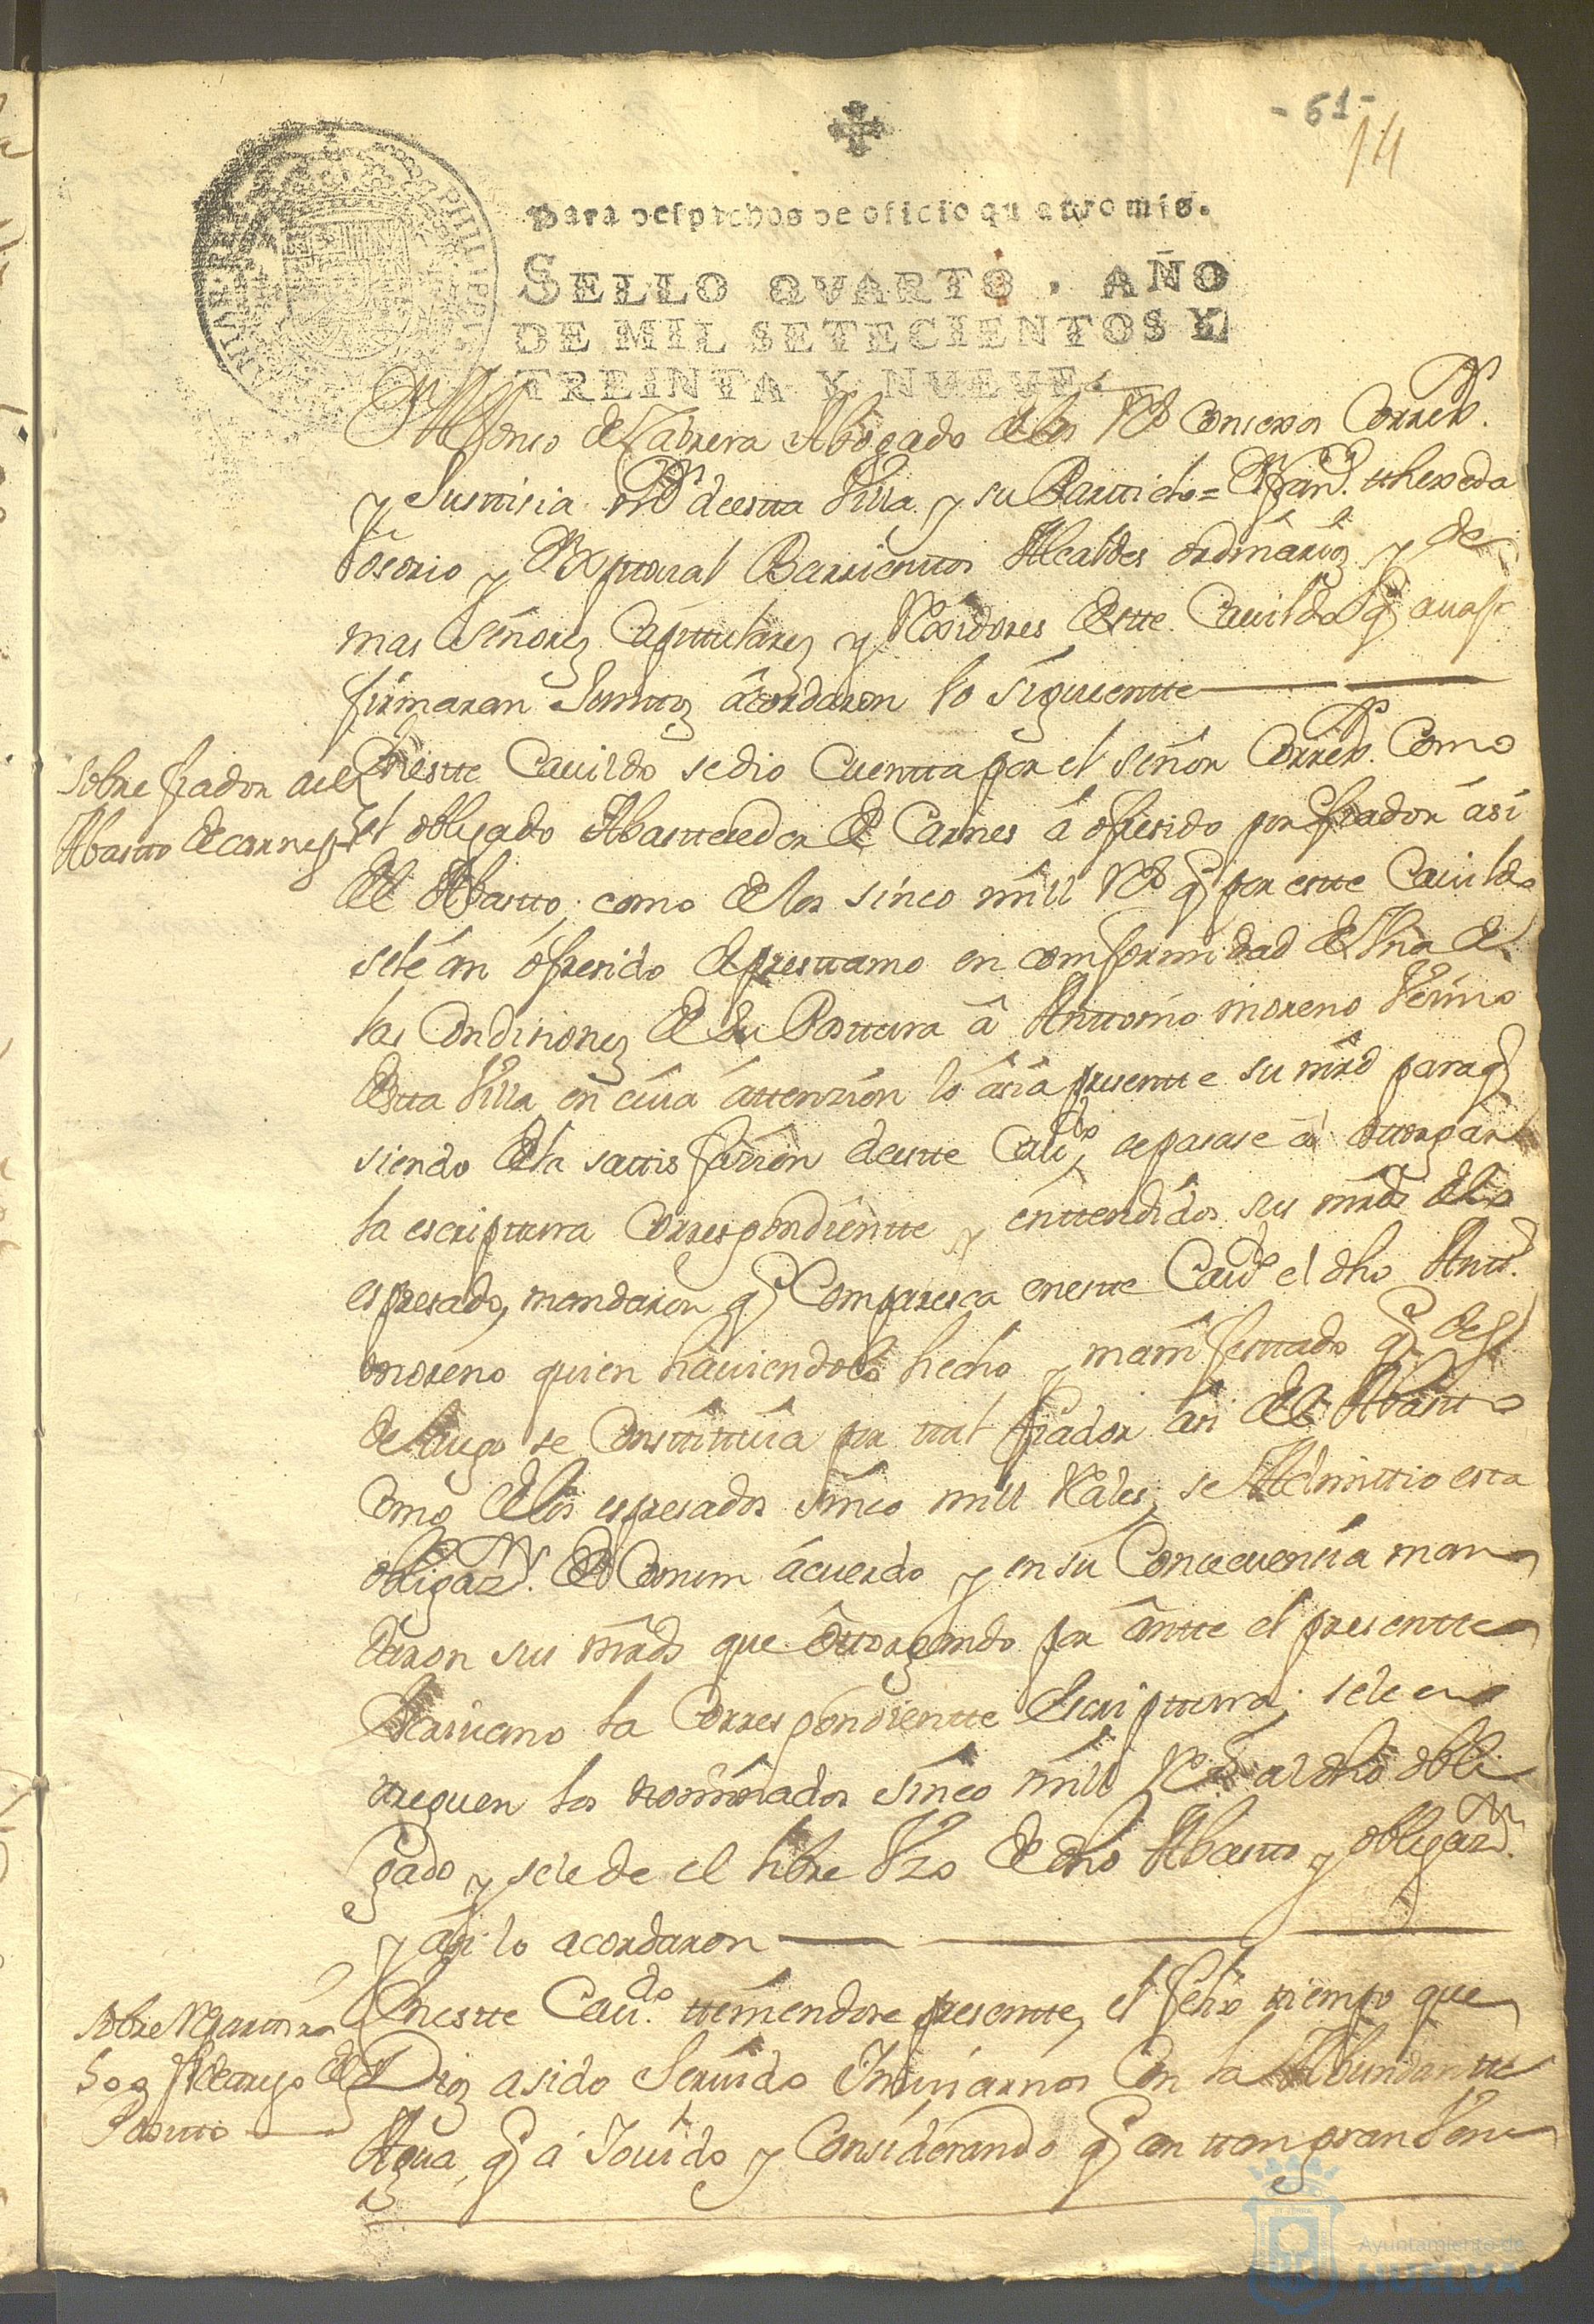 - 61 -
14
Para despachos de oficio quatro mrs.
SELLO QVARTO, AÑO
DE MIL SETECIENTOS Y
TREINTA Y NUEVE.
PHILIPPUS
Dn Alfonso de Cabrera Abogado de los Rs Consexos Correxr.
y Justtisia mr deestta Villa y su Parttido = Dn Franco. tthexeda
Osorio y Dn Xpttoval Barrienttos Alcaldes ordinarios y de
mas Señores Capittulares y Rexidores Destte Cavildo q avaxo
firmaran Junttos acordaron lo siguientte
Sobre fiador del
Abastto de carnes
Enestte Cavildo se dio Cuentta por el señor Correxr. Como
el obligado Abasttecedor de Carnes a ofresido por fiador asi
del Abastto, como de los sinco mill Rs q por estte Cavildo
sele an ofresido de presttamo en comformidad de Vna de
las Condiciones de su Posttura a Anttonio moreno Vezino
destta Villa en cuia attenzion lo asia presentte su mrd para q
siendo de la sattisfacion deestte Cavdo, se pasase a ottorgar
la escripttura Correspondientte y enttendidos sus mrds de lo
espresado, mandaron q Comparesca enestte Cavdo el dho Antto.
moreno quien haviendolo hecho, y manifesttado q des
de luego se Consttittuia por ttal fiador asi del Abastto
Como de los espresados sinco mill Rales, se Admittio esta
obligazn. de Comun acuerdo y en su Consecuencia man
daron sus mrds que ottorgando por antte el presentte
Escrivano la Correspondientte Escripttura, sele en
ttreguen los nominados sinco mill Rs al dho obli
gado y sele de el libre Vzo de dho Abastto y obligazn.
y asi lo acordaron
Sobre Repartir
50 f de trigo del
Positto
Enestte Cavdo. tteniendose presentte, el felix tiempo que
Dios a sido Servido Inviarnos Con la Abundantte
Agua, q a Jovido y Considerando q en ttan gran Vene
Ayuntamiento de
HUELVA